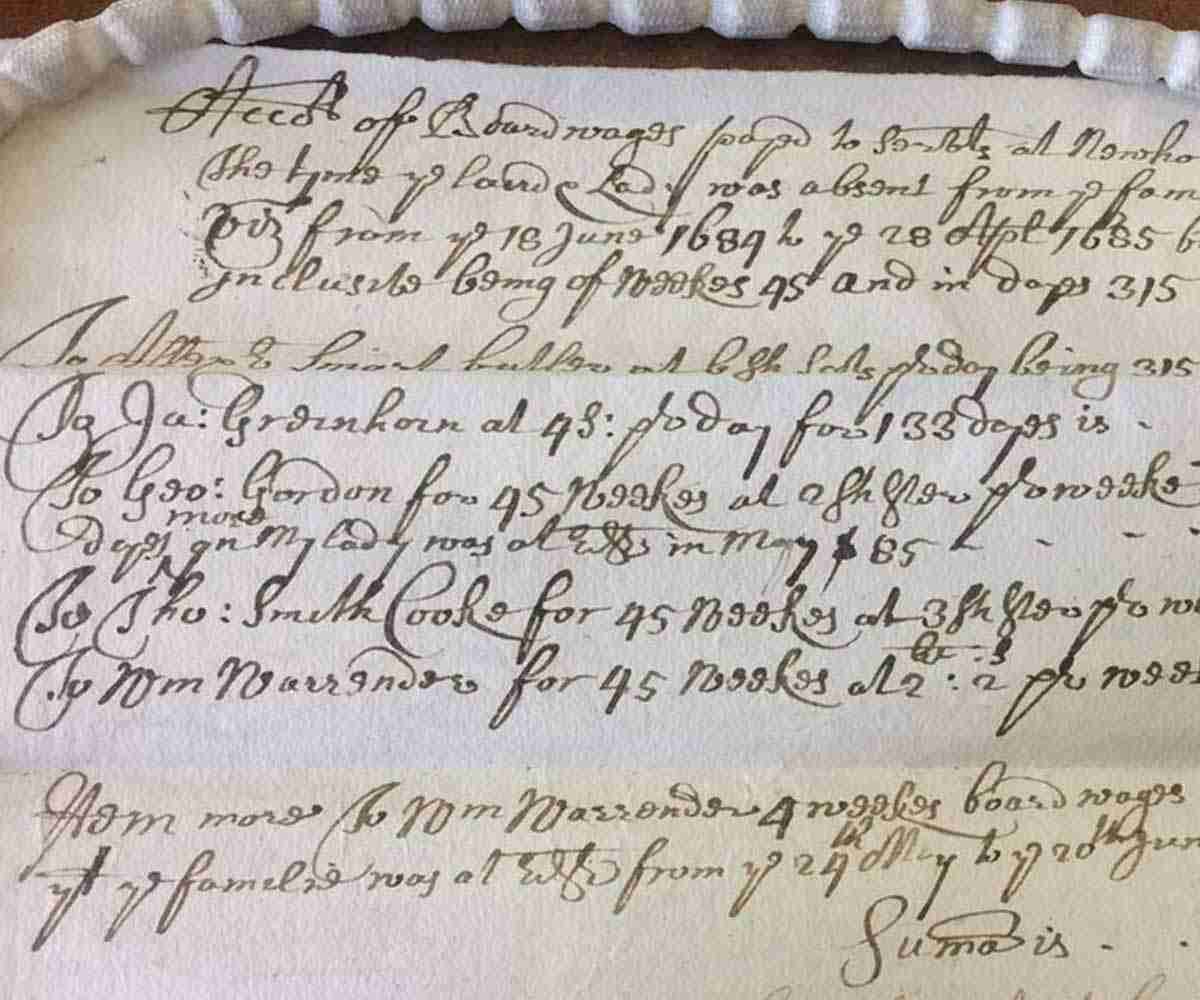 Accots off Boardwages payed to serbts at Newho
The tyme ye laird & Lady was absent from ye fam
Viz from ye 18 June 1684 to ye 28 Apl 1685 b
Inclusive being of Weekes 45 and in dayes 315
To Allexr Smart butler at 6sh Scots pr day being 315
To Ja: Greinhorn at 4s: pr day for 133 dayes is -
To Geo: Gordon for 45 Weekes at 2sh ster pr weeke
more
dayes qn My lady was at Edr in May 85 - - - -
To Tho: Smith Cooke for 45 Weekes at 3sh ster pr we
To Wm Warrender for 45 Weekes at 2 : 2 pr week
Item more To Wm Warrender 4 weekes board wages
yt ye familie was at Edr from ye 24th May to ye 20th Jun
Suma is - -